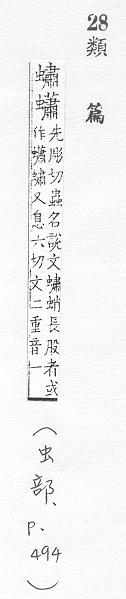 28 類篇
蟰蠨先彫切蟲名說文蟰蛸長股者或
作蠨蟰又息六切文二重音一
(虫部、p.494)